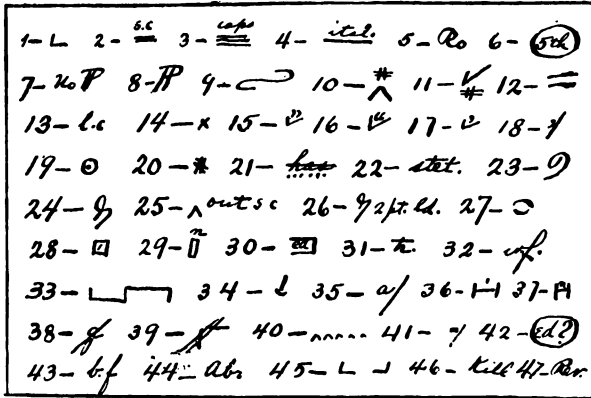 s.c caps
1- L 2- = 3- ≡ 4- ital. 5- Ro 6- 5th
7- no ¶ 8- ¶ 9- 10- # ^ 11- # 12- =
13- l.c 14- x 15- " 16- " 17- ' 18- ;/
19- ⊙ 20- * 21- has 22- stet. 23- 9
24- 25- ^ out s c 26- 2 pt. ld. 27-
28- 29- n 30- 31- tr. 32- wf.
33- 34- 35- a/ 36- 37-
38- 39- 40- 41- =/ 42- Ed?
43- b.f 44- Abs 45- L ⅃ 46- Kill 47- Rev.